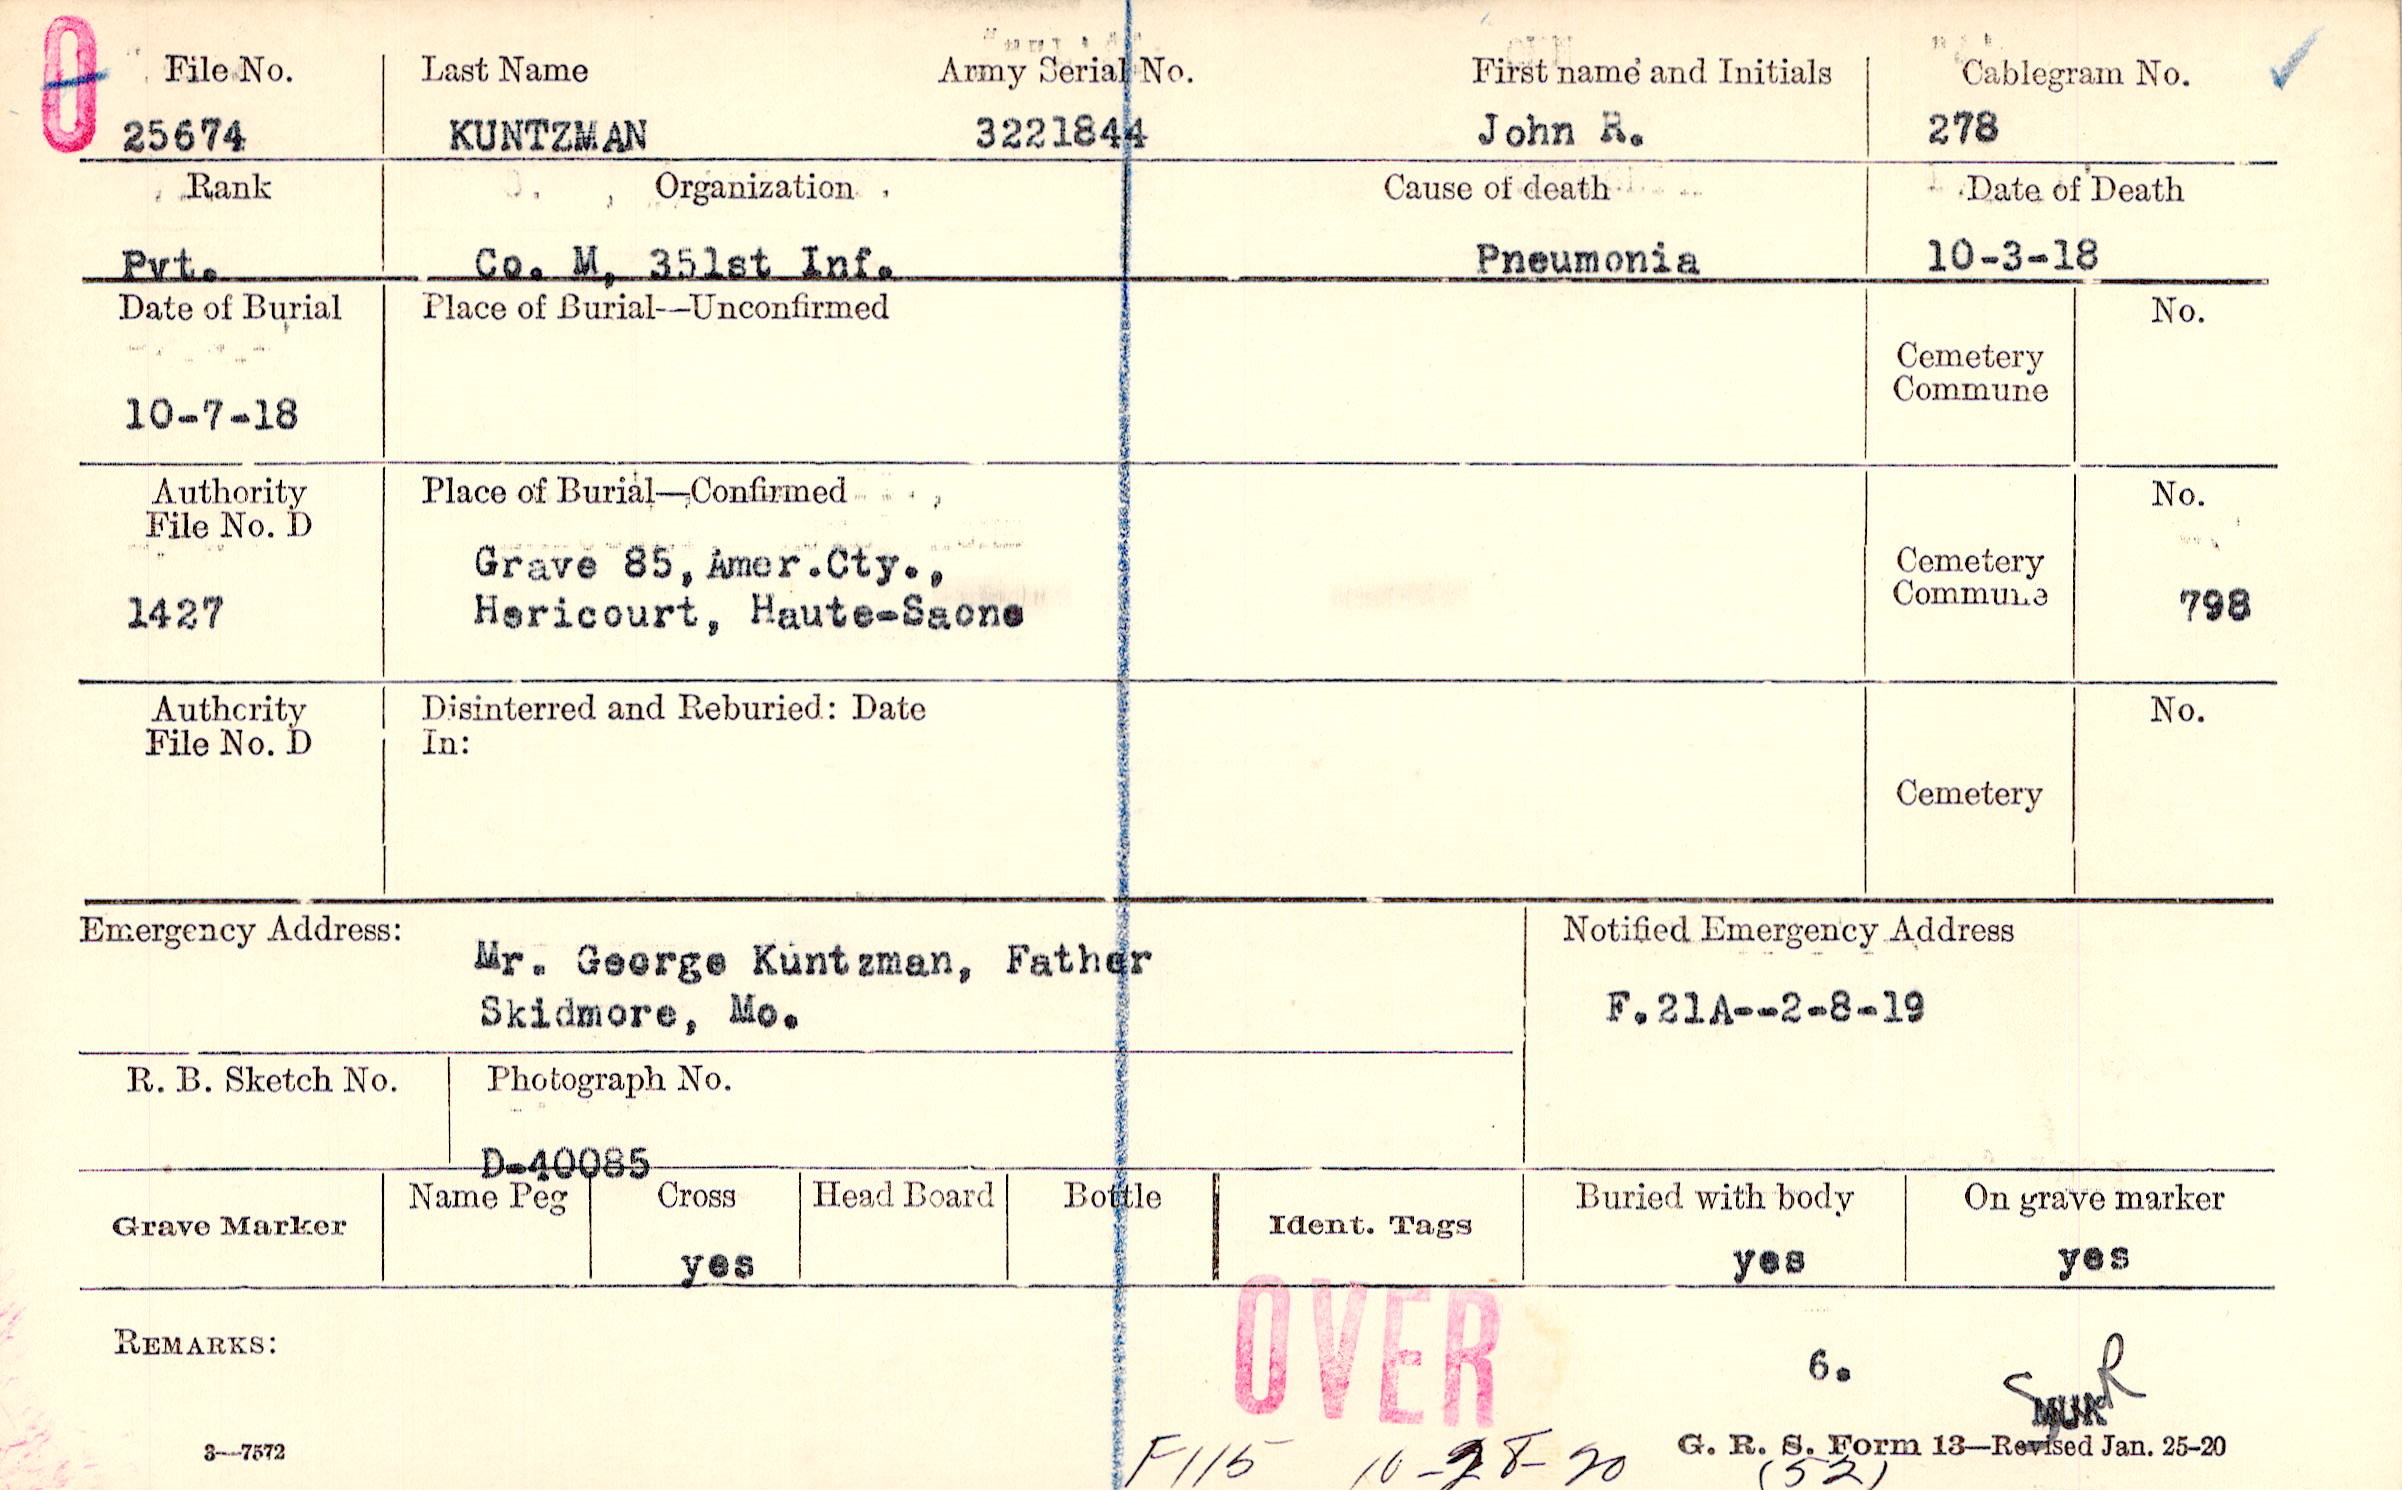 0
File No. Last Name Army Serial No. First name and Initials Cablegram No.
25674 KUNTZMAN 3221844 John R. 278
Rank Organization Cause of death Date of Death
Pvt. Co. M, 351st Inf. Pneumonia 10-3-18
Date of Burial Place of Burial—Unconfirmed No.
Cemetery
Commune
10-7-18
Authority Place of Burial—Confirmed No.
File No. D
Grave 85, Amer.Cty., Cemetery
1427 Hericourt, Haute-Saone Commune 798
Authority Disinterred and Reburied: Date No.
File No. D In:
Cemetery
Emergency Address: Notified Emergency Address
Mr. George Kuntzman, Father
Skidmore, Mo. F.21A--2-8-19
R. B. Sketch No. Photograph No.
D-40085
Grave Marker Name Peg Cross Head Board Bottle Ident. Tags Buried with body On grave marker
yes yes yes
OVER
REMARKS: 6.
3—7572 F115 10-28-20 G. R. S. Form 13—Revised Jan. 25-20
(52)